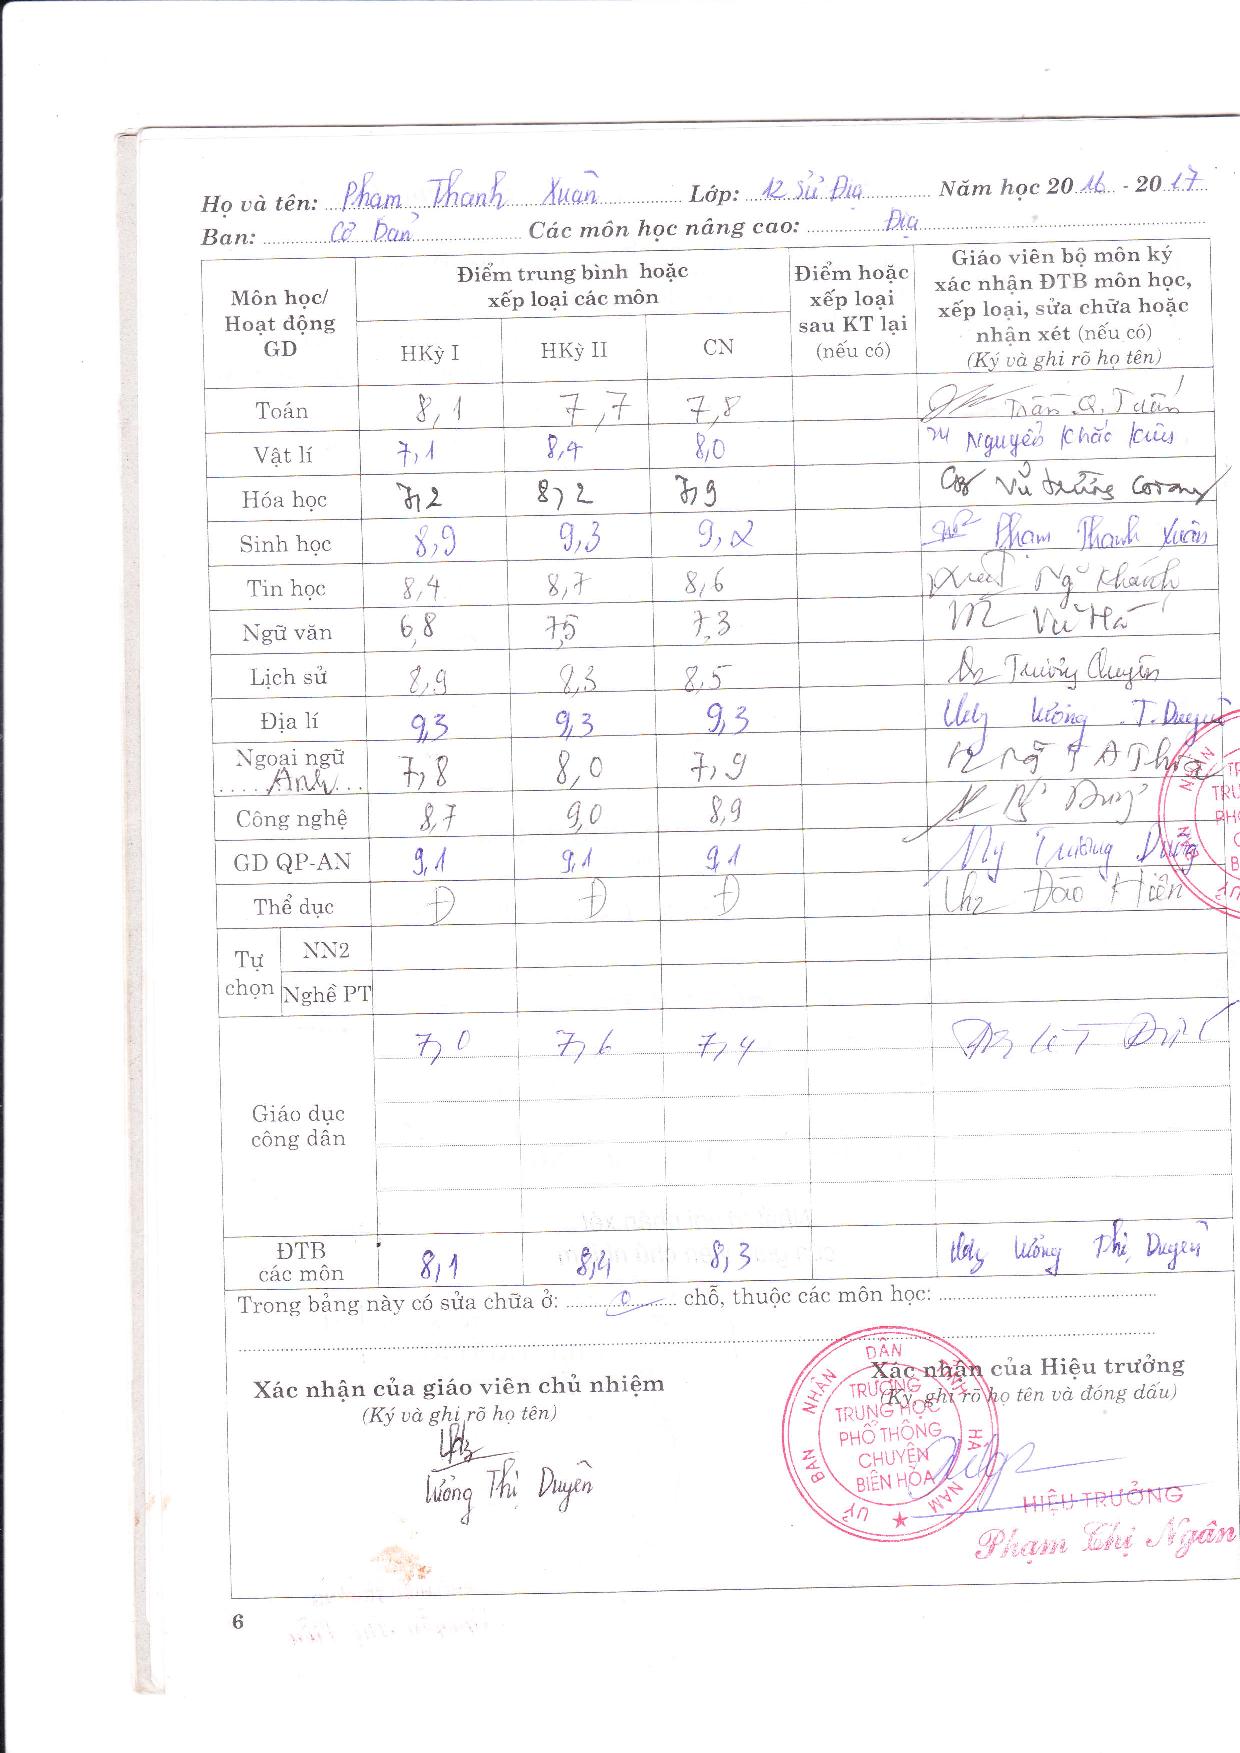 Họ và tên: Phạm Thanh Xuân Lớp: 12 Sử Địa Năm học 2016 - 2017
Ban: Cơ bản Các môn học nâng cao: Địa
Môn học/ Hoạt động GD
Điểm trung bình hoặc xếp loại các môn
HKỳ I HKỳ II CN
Điểm hoặc xếp loại sau KT lại (nếu có)
Giáo viên bộ môn ký xác nhận ĐTB môn học, xếp loại, sửa chữa hoặc nhận xét (nếu có) (Ký và ghi rõ họ tên)
Toán 8,1 7,7 7,8 Trần Q. Tuấn
Vật lí 7,1 8,4 8,0 Nguyễn Khắc
Hóa học 7,2 8,2 7,9 Vũ Trường
Sinh học 8,9 9,3 9,2 Phạm Thanh Xuân
Tin học 8,4 8,7 8,6 Ng Khánh
Ngữ văn 6,8 7,5 7,3 Vũ Hà
Lịch sử 8,9 8,3 8,5 Trương Chuyên
Địa lí 9,3 9,3 9,3 Lương T. Duyên
Ngoại ngữ Anh 7,8 8,0 7,9
Công nghệ 8,7 9,0 8,9
GD QP-AN 9,1 9,1 9,1 Trương Dũng
Thể dục Đ Đ Đ Đào Hiên
Tự chọn
NN2
Nghề PT
Giáo dục công dân 7,0 7,6 7,4
ĐTB các môn 8,1 8,4 8,3 Lương Thị Duyên
Trong bảng này có sửa chữa ở: 0 chỗ, thuộc các môn học:
Xác nhận của giáo viên chủ nhiệm
(Ký và ghi rõ họ tên)
Lương Thị Duyên
Xác nhận của Hiệu trưởng
(Ký, ghi rõ họ tên và đóng dấu)
UỶ BAN NHÂN DÂN TỈNH HÀ NAM
TRƯỜNG
TRUNG HỌC
PHỔ THÔNG
CHUYÊN
BIÊN HÒA
HIỆU TRƯỞNG
Phạm Thị Ngân
6